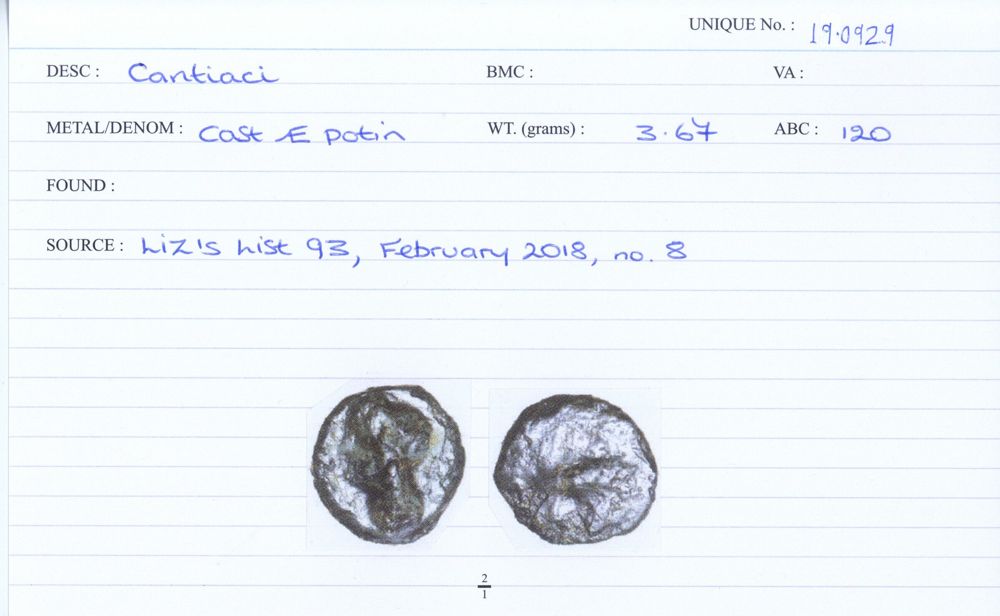 UNIQUE No. : 19.0929
DESC : Cantiaci BMC : VA :
METAL/DENOM : Cast Æ potin WT. (grams) : 3.67 ABC : 120
FOUND :
SOURCE : Liz's List 93, February 2018, no. 8
2
1